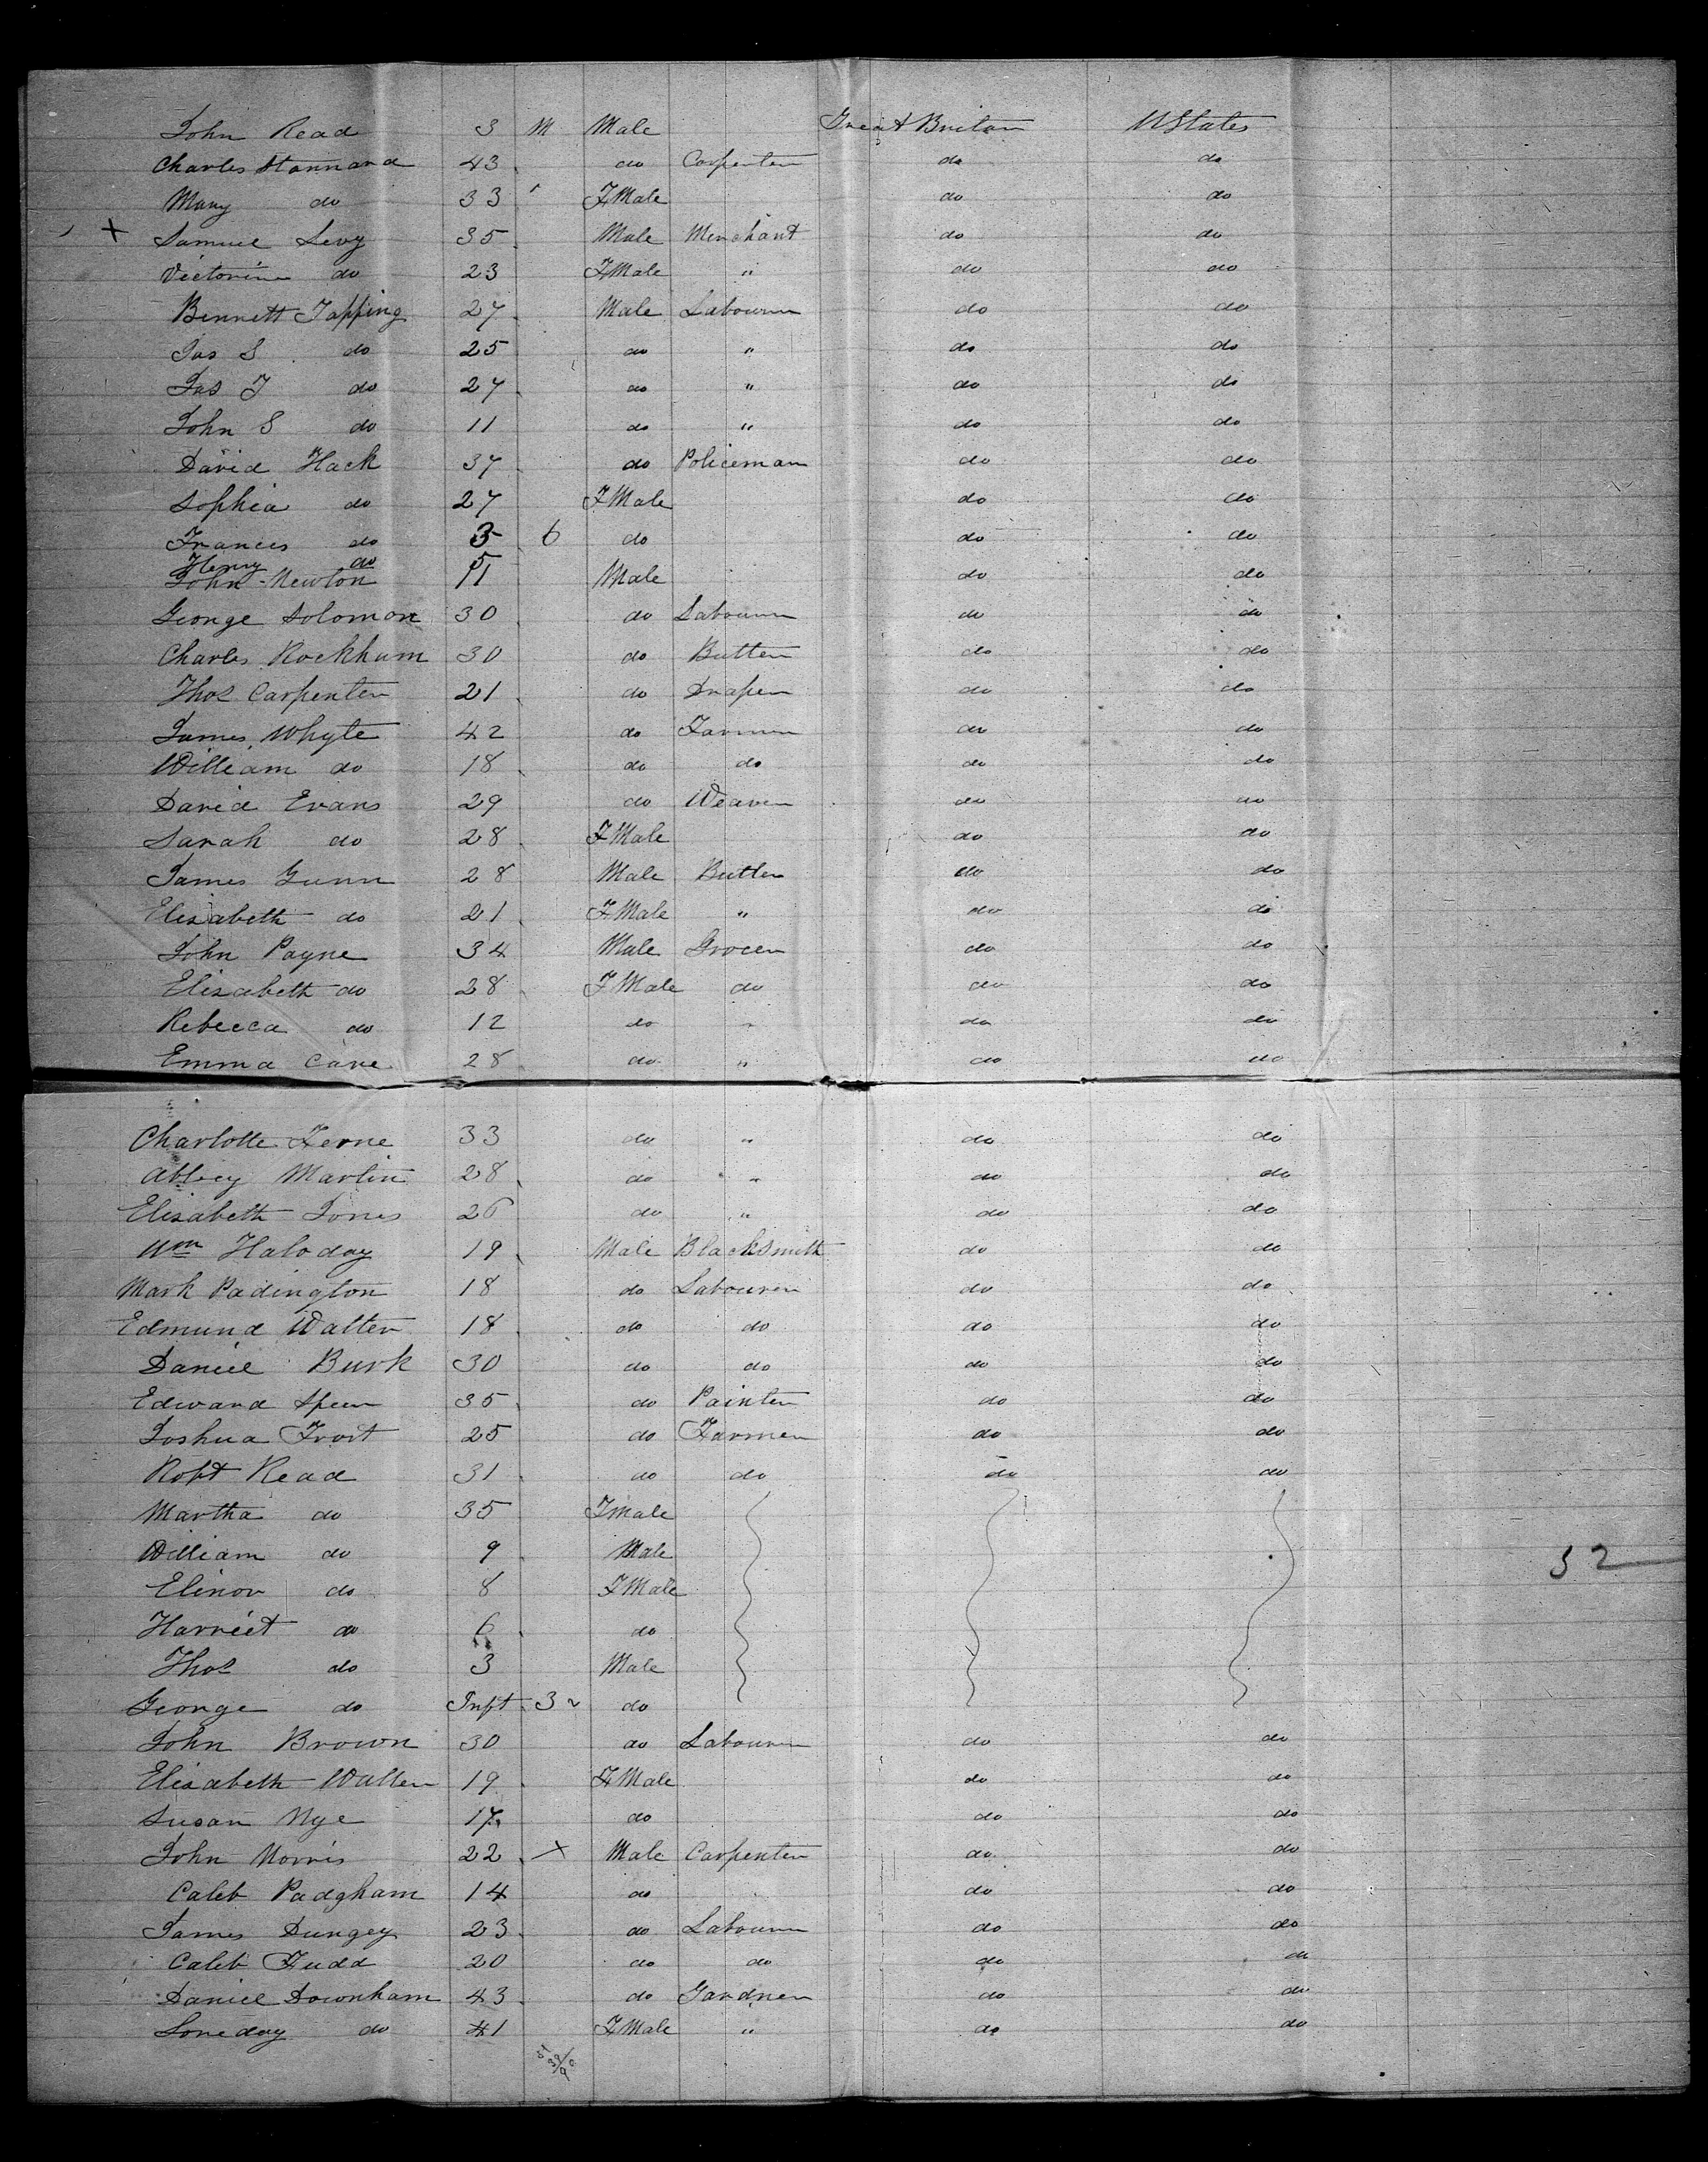 John Read 3 M Male Great Britain UStates
Charles Stannard 43 do Carpenter do do
Mary do 33 FMale do do
X Samuel Levy 35 Male Merchant do do
Victorine do 23 FMale " do do
Bennett Tapping 27 Male Labourer do do
Jas S do 25 do " do do
Jas T do 27 do " do do
John S do 11 do " do do
David Hack 37 do Policeman do do
Sophia do 27 FMale do do
Frances do 3 6 do do do
Henry do 5
John Newton 11 Male do do
George Solomon 30 do Labourer do do
Charles Rockhum 30 do Butler do do
Thos Carpenter 21 do Draper do do
James Whyte 42 do Farmer do do
William do 18 do do do do
David Evans 29 do Weaver do do
Sarah do 28 FMale do do
James Gunn 28 Male Butler do do
Elisabeth do 21 FMale " do do
John Payne 34 Male Grocer do do
Elisabeth do 28 FMale do do do
Rebecca do 12 do " do do
Emma Cave 28 do " do do
Charlotte Ferne 33 do " do do
Martin 28 do " do do
Elisabeth Jones 26 do " do do
Wm Haloday 19 Male Blacksmith do do
Mark Padington 18 do Labourer do do
Edmund Walter 18 do do do do
Daniel Burk 30 do do do do
Edward Speer 35 do Painter do do
Joshua Troit 25 do Farmer do do
Robt Read 31 do do do do
Martha do 35 Fmale
William do 9 Male
Elinor do 8 FMale
Harriet do 6 do
Thos do 3 Male
George do Inft 3 do
John Brown 30 do Labourer do do
Elisabeth Waller 19 FMale do do
Susan Nye 17 do do do
John Morris 22 X Male Carpenter do do
Caleb Padgham 14 do do do
James Dungey 23 do Labourer do do
Caleb Judd 20 do do do do
Daniel Downham 43 do Gardner do do
Loveday do 41 FMale " do do